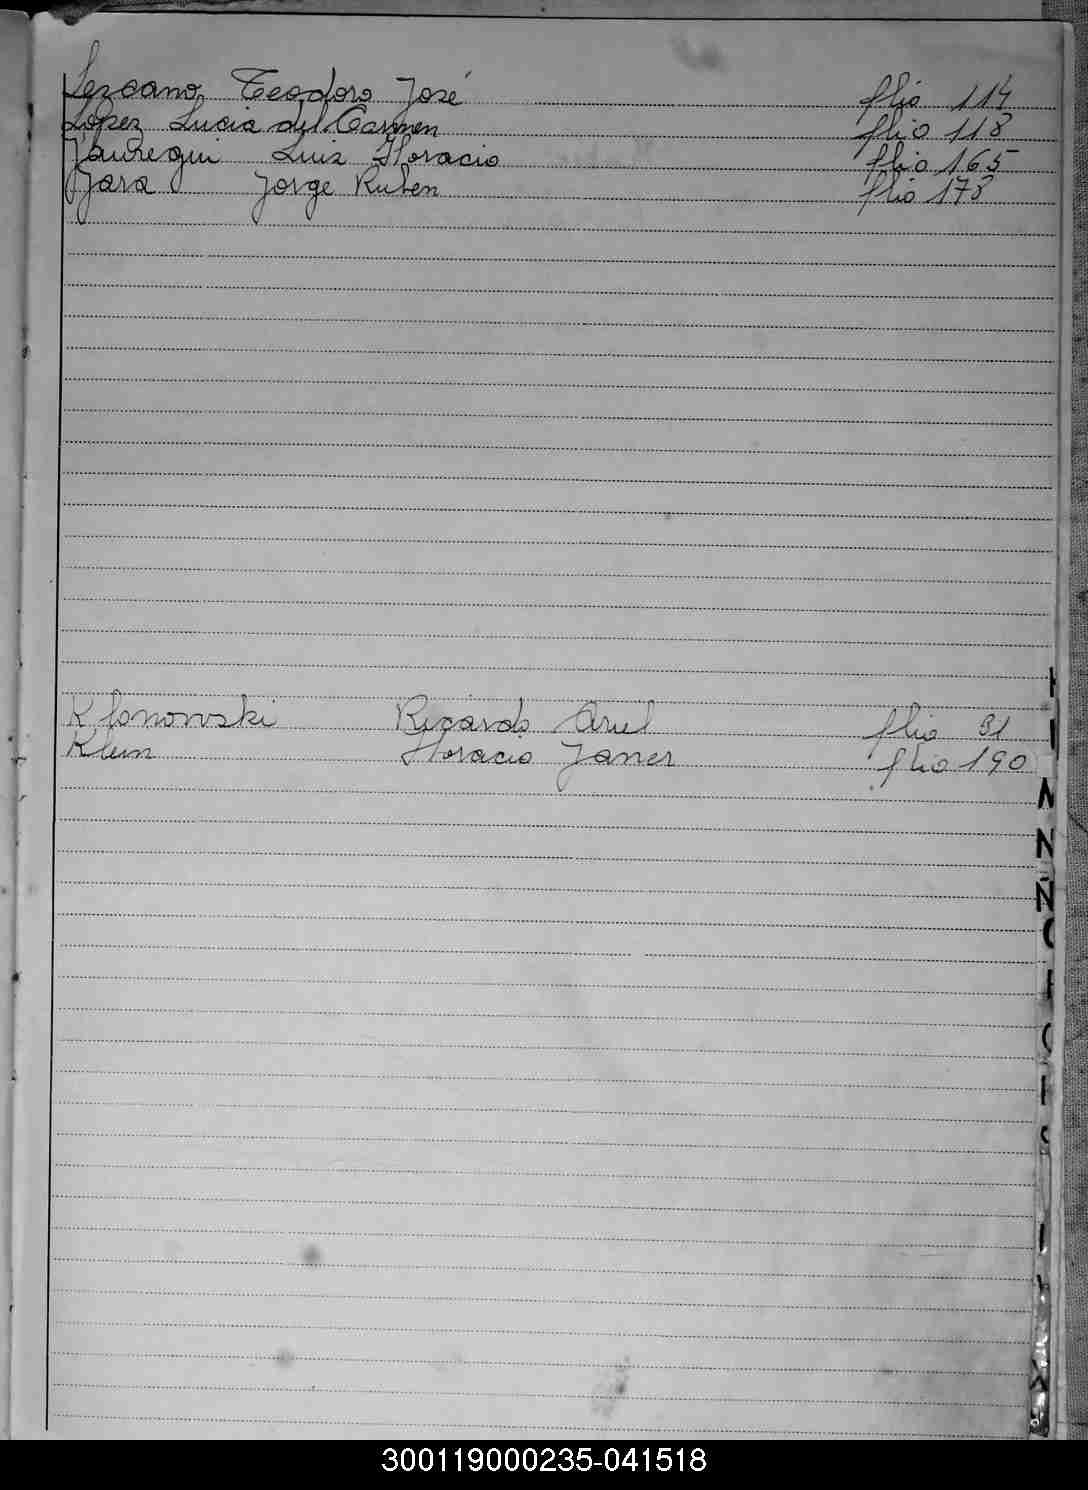 Lezcano Teodoro José flio 114
Lopez Lucia del Carmen flio 118
Jauregui Luis Horacio flio 165
Jara Jorge Ruben flio 178
Klonowski Ricardo Ariel flio 31
Klein Horacio Janer flio 190
N
Ñ
300119000235-041518